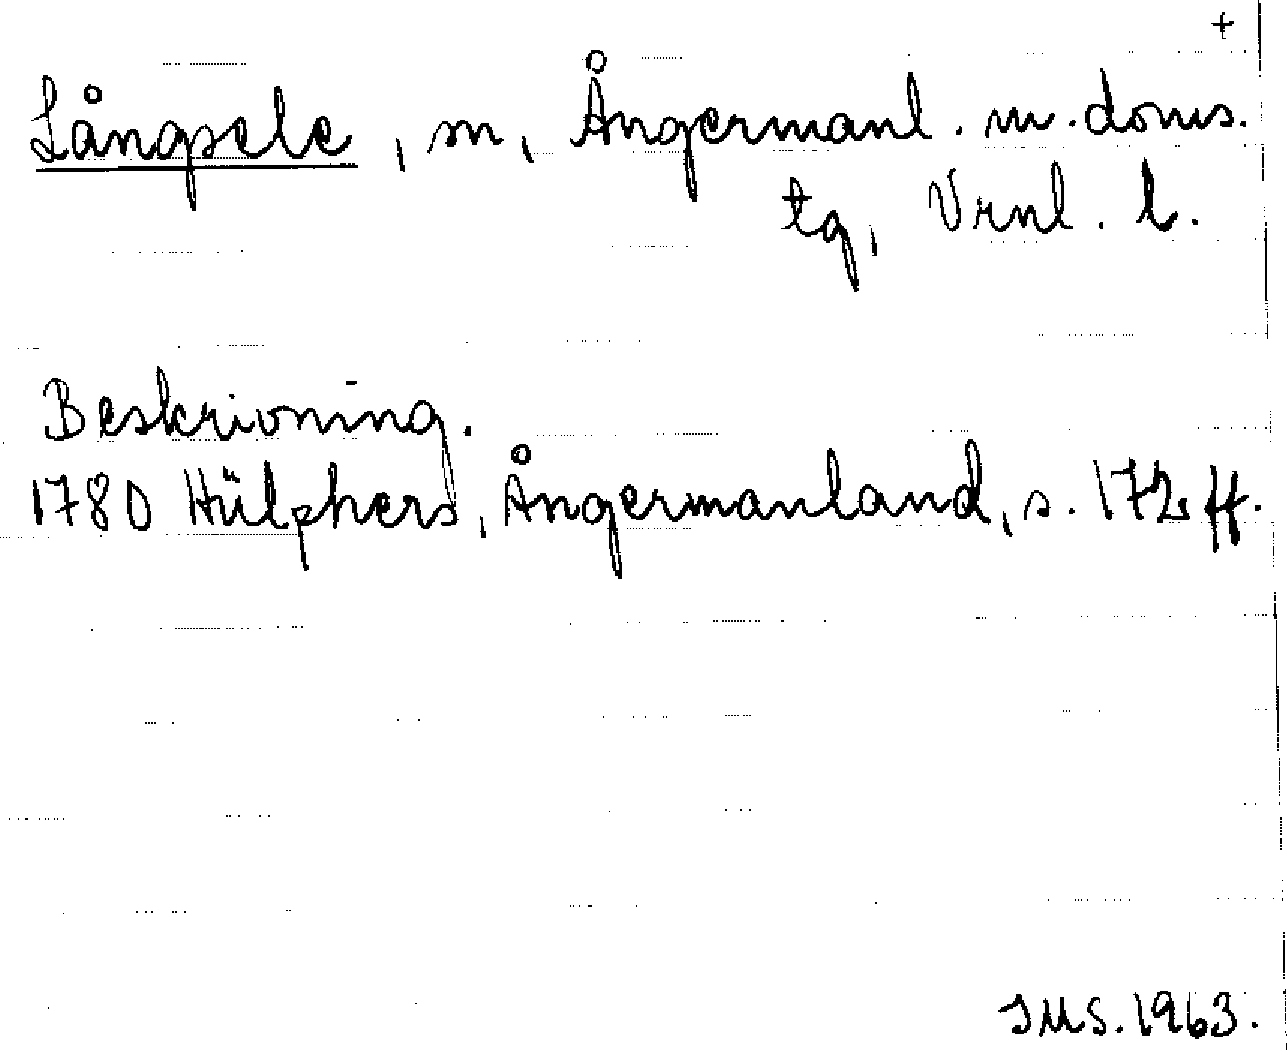 +
Långsele, sn, Ångermanl. m. doms.
tg, Vrnl. l.
Beskrivning.
1780 Hülphers, Ångermanland, s. 172 ff.
IMS. 1963.